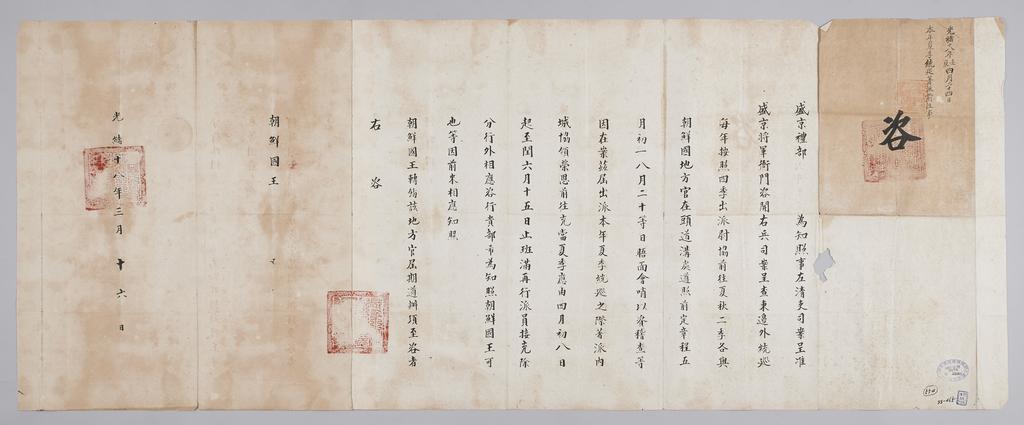 咨
盛京禮部 為知照事在清吏司案呈准
盛京將軍衙門咨開右兵司案呈查東邊外統巡
每年按照四季出派尉協前往夏秋二季各與
朝鮮國地方官在頭道溝處遵照前定章程五
月初一八月二十等日晤面會哨以眷稽查等
因在案茲屆出派本年夏季統巡之際著派內
城協領榮恩前往充當夏季應由四月初八日
起至閏六月十五日止班滿再行派員接充除
分行外相應咨行貴部希為知照朝鮮國王可
也等因前來相應知照
朝鮮國王轉飭該地方官屆期遵辦須至咨者
右 咨
朝鮮國王
光緒十八年三月 十六 日